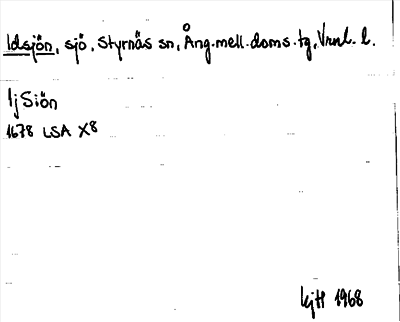 Idsjön, sjö, Styrnäs sn, Ång.mell.doms.tg, Vrnl. l.
Ij Siön
1678 LSA X8
KjH 1968